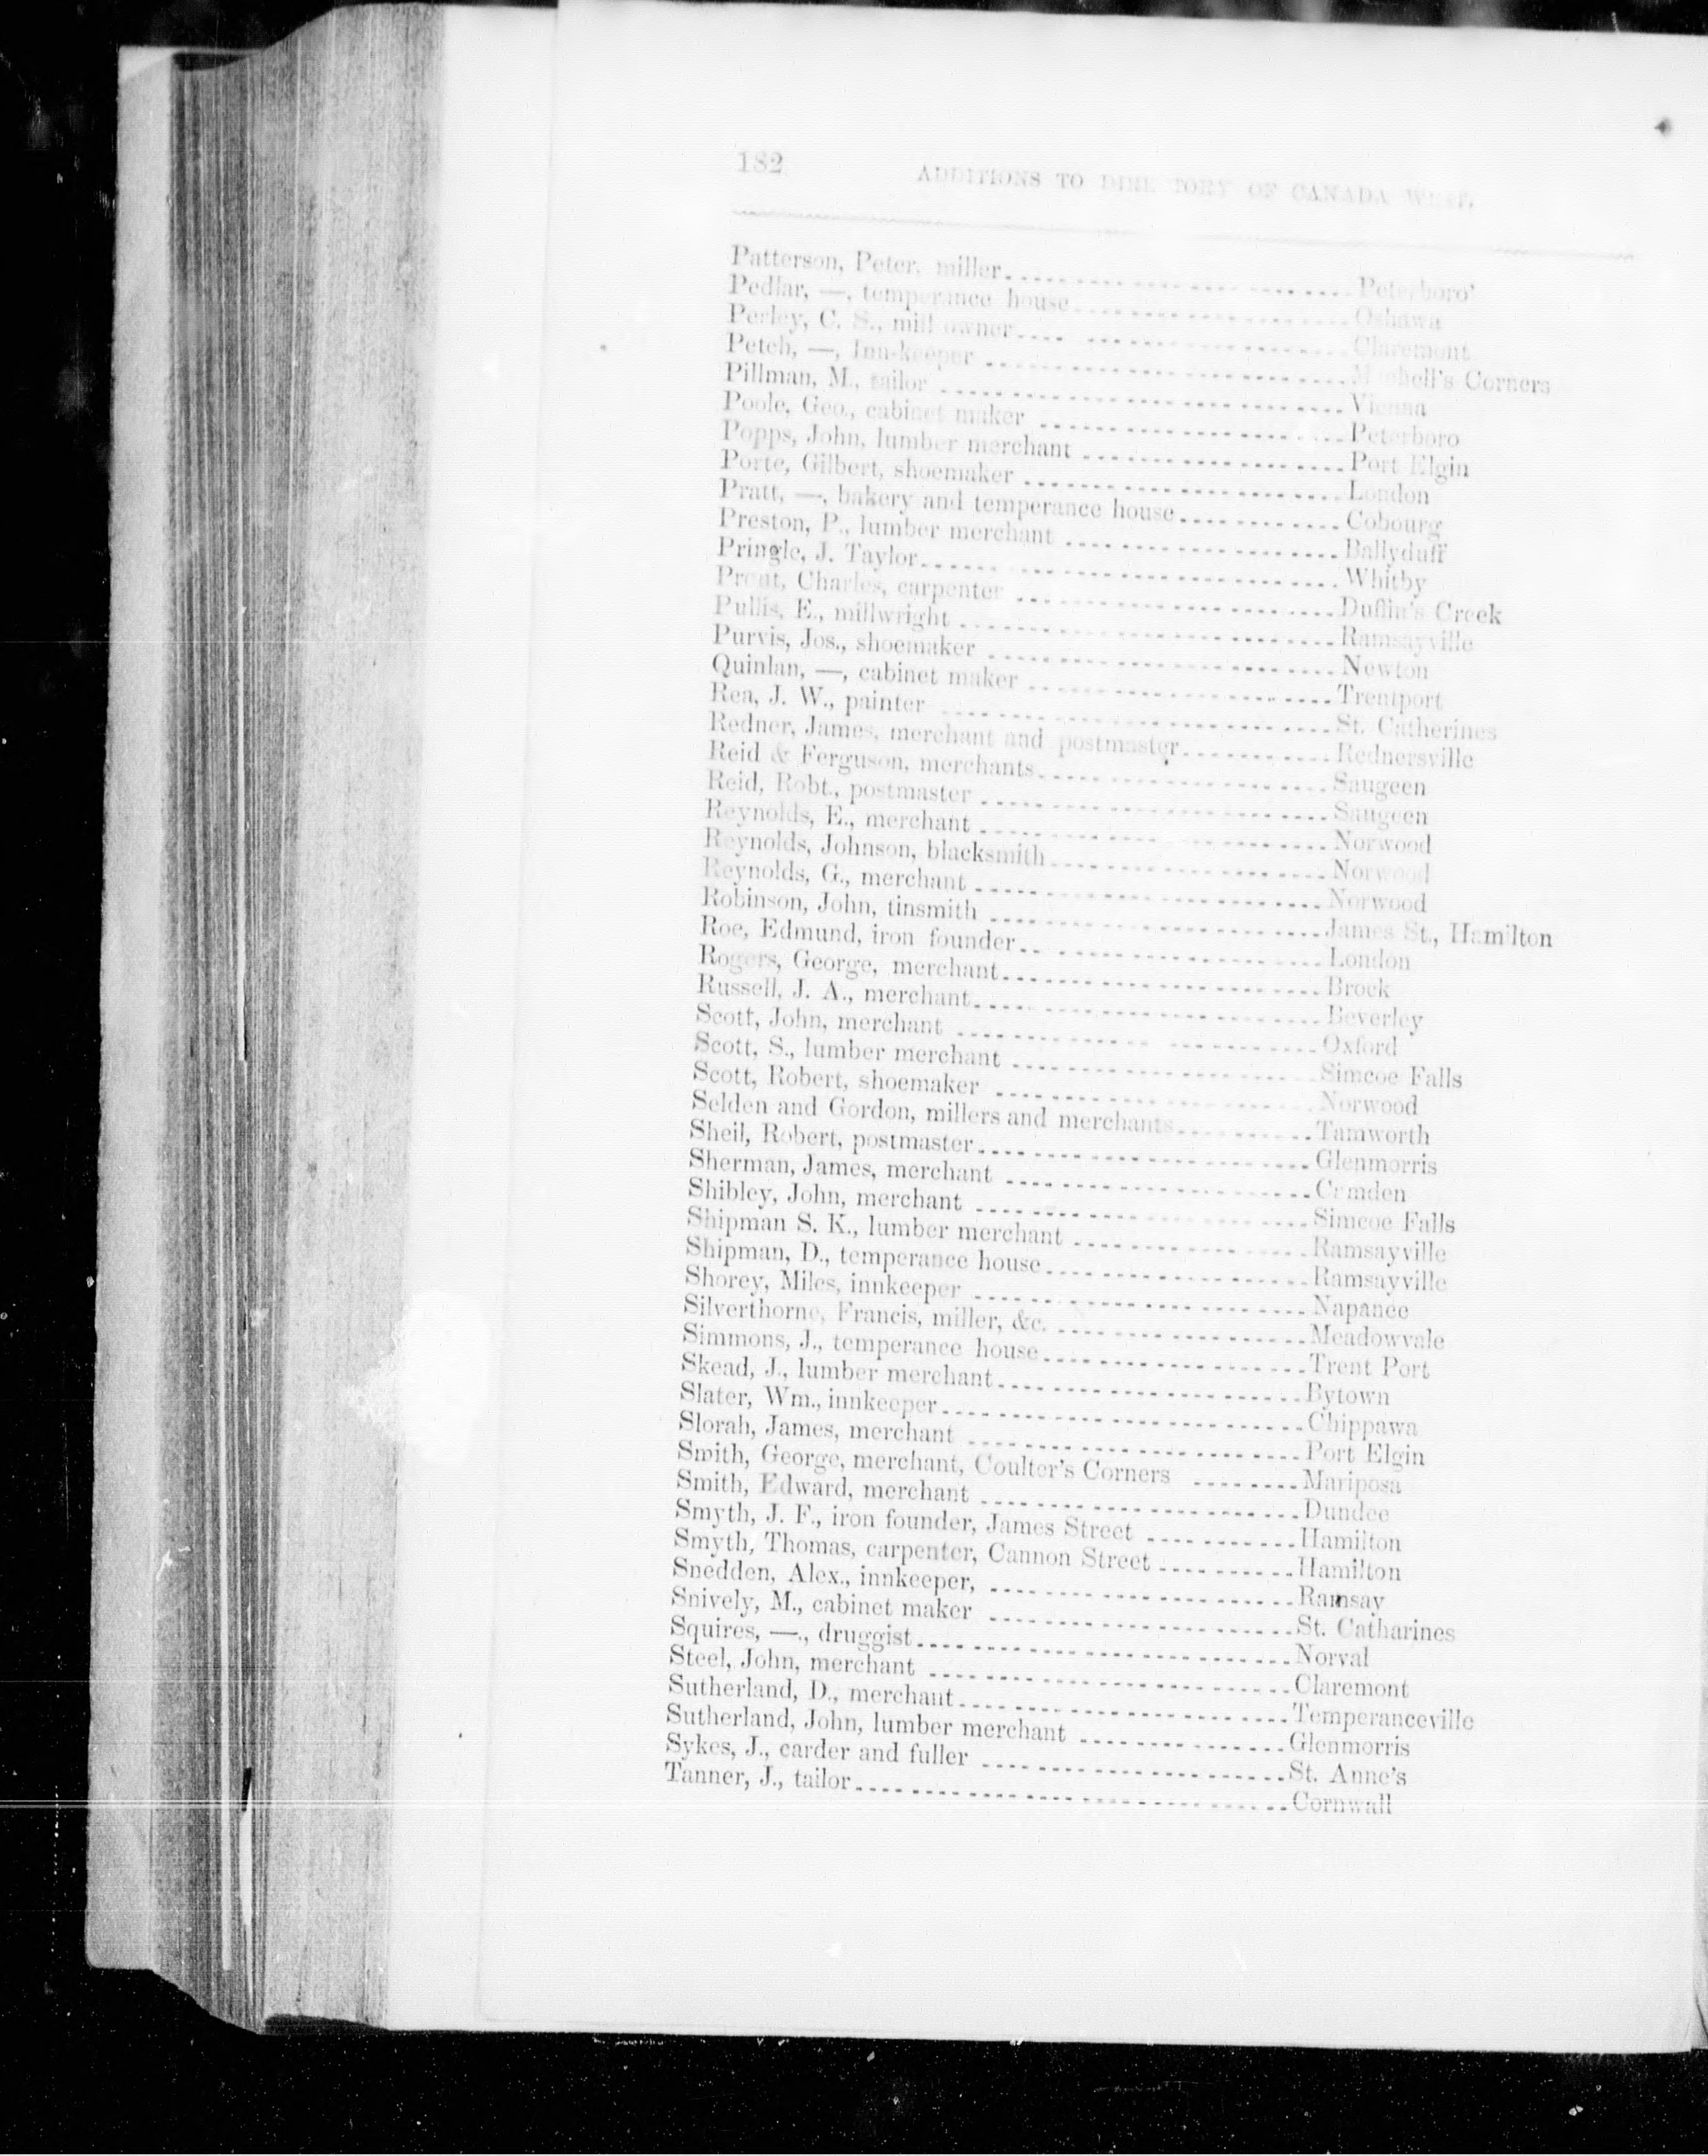 182
ADDITIONS TO DIRECTORY OF CANADA WEST.
Patterson, Peter, miller Peterboro'
Pedlar, —, temperance house Oshawa
Perley, C. S., mill owner Claremont
Petch, —, Inn-keeper Mitchell's Corners
Pillman, M., tailor Vienna
Poole, Geo., cabinet maker Peterboro
Popps, John, lumber merchant Port Elgin
Porte, Gilbert, shoemaker London
Pratt, —, bakery and temperance house Cobourg
Preston, P., lumber merchant Ballyduff
Pringle, J. Taylor Whitby
Prout, Charles, carpenter Duffin's Creek
Pullis, E., millwright Ramsayville
Purvis, Jos., shoemaker Newton
Quinlan, —, cabinet maker Trentport
Rea, J. W., painter St. Catherines
Redner, James, merchant and postmaster Rednersville
Reid & Ferguson, merchants Saugeen
Reid, Robt., postmaster Saugeen
Reynolds, E., merchant Norwood
Reynolds, Johnson, blacksmith Norwood
Reynolds, G., merchant Norwood
Robinson, John, tinsmith James St., Hamilton
Roe, Edmund, iron founder London
Rogers, George, merchant Brock
Russell, J. A., merchant Beverley
Scott, John, merchant Oxford
Scott, S., lumber merchant Simcoe Falls
Scott, Robert, shoemaker Norwood
Selden and Gordon, millers and merchants Tamworth
Sheil, Robert, postmaster Glenmorris
Sherman, James, merchant Camden
Shibley, John, merchant Simcoe Falls
Shipman S. K., lumber merchant Ramsayville
Shipman, D., temperance house Ramsayville
Shorey, Miles, innkeeper Napanee
Silverthorne, Francis, miller, &c. Meadowvale
Simmons, J., temperance house Trent Port
Skead, J., lumber merchant Bytown
Slater, Wm., innkeeper Chippawa
Slorah, James, merchant Port Elgin
Smith, George, merchant, Coulter's Corners Mariposa
Smith, Edward, merchant Dundee
Smyth, J. F., iron founder, James Street Hamilton
Smyth, Thomas, carpenter, Cannon Street Hamilton
Snedden, Alex., innkeeper, Ramsay
Snively, M., cabinet maker St. Catharines
Squires, —., druggist Norval
Steel, John, merchant Claremont
Sutherland, D., merchant Temperanceville
Sutherland, John, lumber merchant Glenmorris
Sykes, J., carder and fuller St. Anne's
Tanner, J., tailor Cornwall